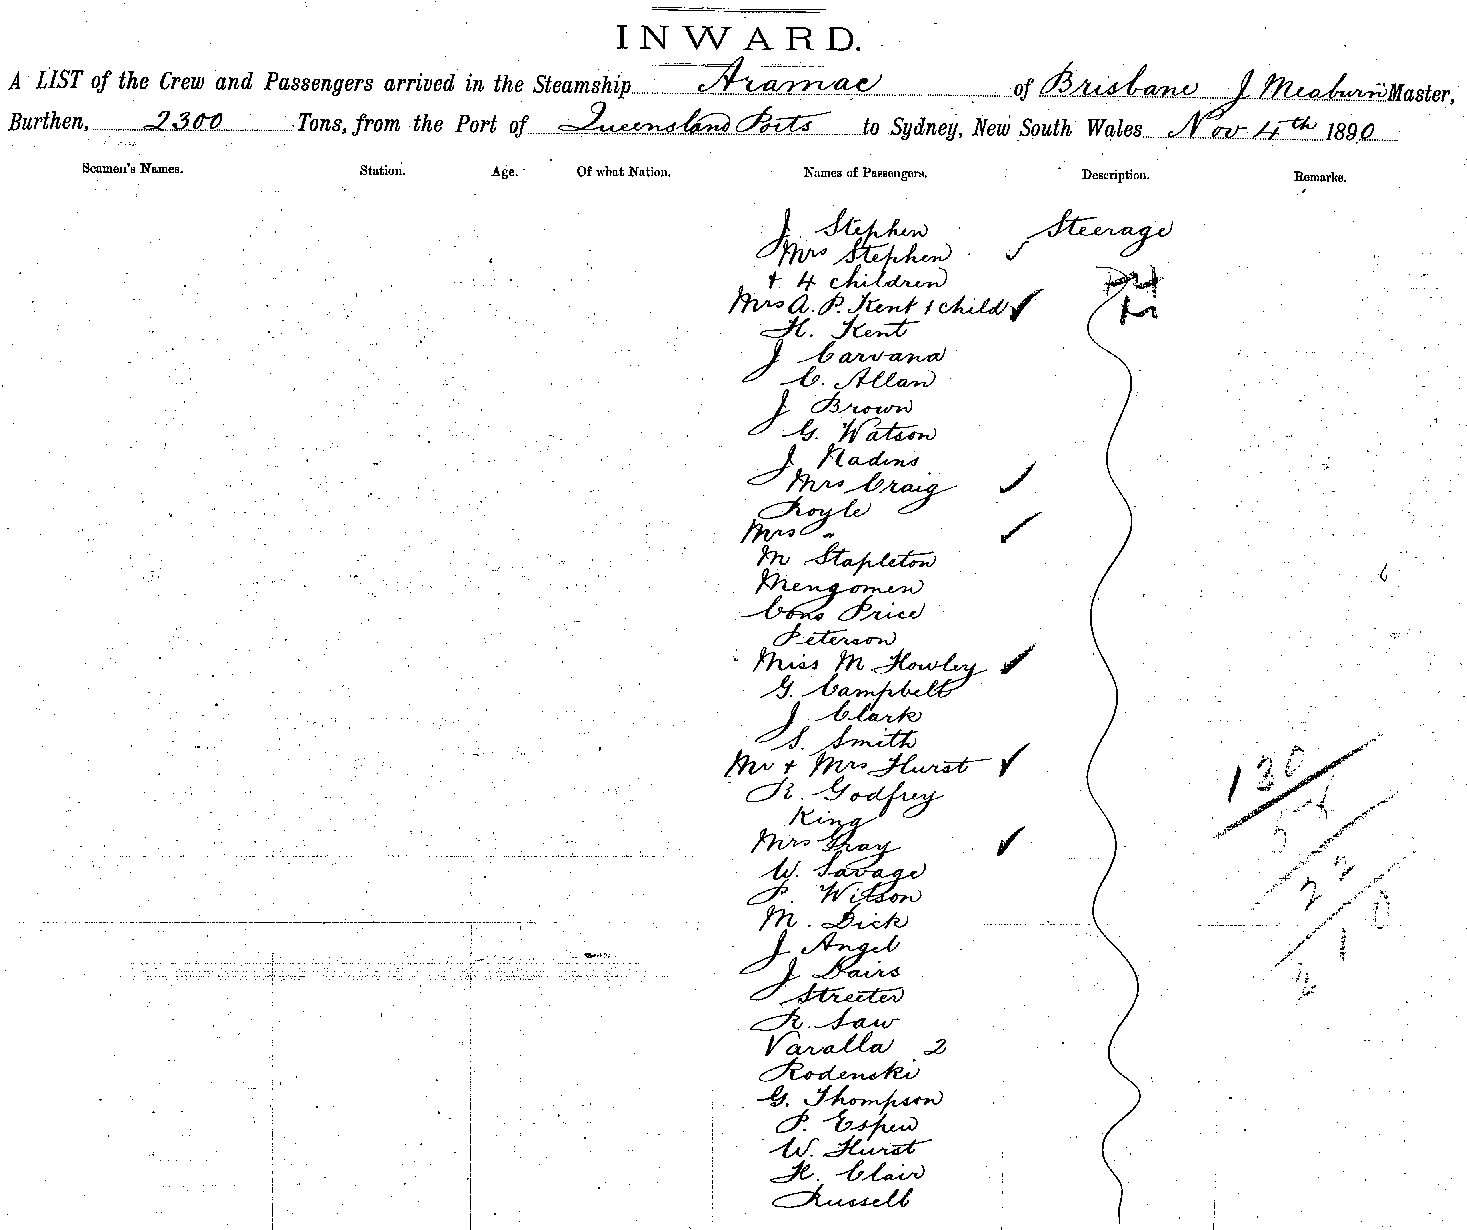 INWARD.
A LIST of the Crew and Passengers arrived in the Steamship Aramac of Brisbane J Meaburn Master,
Burthen, 2300 Tons, from the Port of Queensland Ports to Sydney, New South Wales Nov 4th 1890
Seamen's Names. Station. Age. Of what Nation. Names of Passengers. Description. Remarks.
J Stephen Steerage
Mrs Stephen
+ 4 children
Mrs A. P. Kent 1 child
H. Kent
J Carvana
C. Allan
J Brown
G. Watson
J Nadins
Mrs Craig
Royle
Mrs "
M Stapleton
Mengomen
Cons Price
Peterson
Miss M Howley
G. Campbell
J Clark
S. Smith
Mr + Mrs Hurst
R. Godfrey
King
Mrs Gray
W. Savage
P. Wilson
M. Dick
J Angel
J Dairs
Streeter
R. Saw
Varalla 2
Rodenski
G. Thompson
P. Espen
W. Hurst
H. Clair
Russell